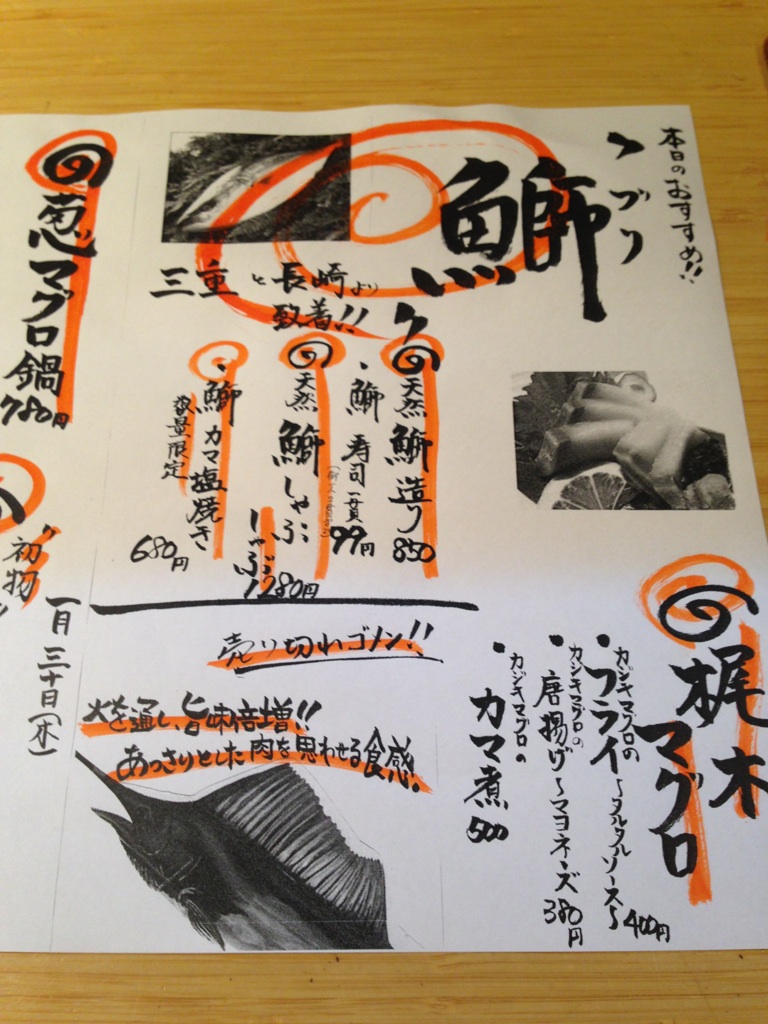 本日のおすすめ!!
〝ブリ
鰤〟
三重と長崎より
到着!!
天然鰤造り 850
・鰤 寿司一貫 99円
天然鰤しゃぶしゃぶ 1280円
・鰤カマ塩焼き 680円
数量限定
梶木マグロ
・カジキマグロのフライ〜タルタルソース〜 400円
・カジキマグロの唐揚げ〜マヨネーズ 380円
・カジキマグロのカマ煮 500
売り切れゴメン!!
火を通し旨味倍増!!
あっさりとした肉を思わせる食感!
葱マグロ鍋
780円
〝初物〟
一月三十日(木)